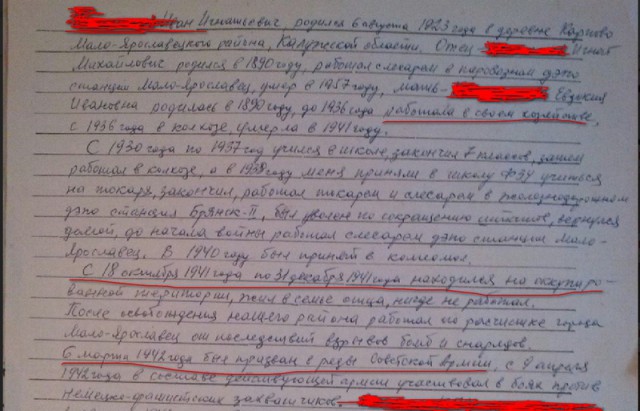 Иван Игнатьевич, родился 6 августа 1923 года в деревне Карпово
Мало-Ярославецкого района, Калужской области. Отец - Игнат
Михайлович родился в 1890 году, работал слесарем в паровозном депо
станции Мало-Ярославец, умер в 1957 году, мать - Евдокия
Ивановна родилась в 1890 году, до 1936 года работала в своем хозяйстве,
с 1936 года в колхозе, умерла в 1941 году.
С 1930 года по 1937 год учился в школе, закончил 7 классов, затем
работал в колхозе, а в 1938 году меня приняли в школу ФЗУ учиться
на токаря, закончил, работал токарем и слесарем в железнодорожном
депо станция Брянск-II, был уволен по сокращению штатов, вернулся
домой, до начала войны работал слесарем депо станции Мало-
Ярославец. В 1940 году был принят в комсомол.
С 18 октября 1941 года по 31 декабря 1941 года находился на оккупиро-
ванной территории, жил в семье отца, нигде не работал.
После освобождения нашего района работал по расчистке города
Мало-Ярославец от последствий взрывов бомб и снарядов.
6 марта 1942 года был призван в ряды Советской Армии, с 9 апреля
1942 года в составе действующей армии участвовал в боях против
немецко-фашистских захватчиков.